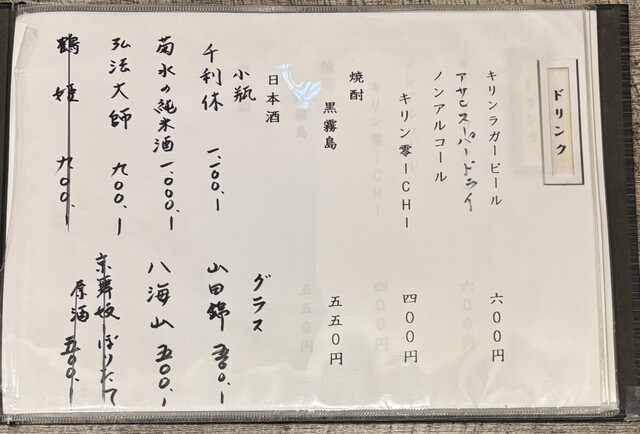 ドリンク
キリンラガービール 六〇〇円
アサヒスーパードライ
ノンアルコール
キリン零ICHI 四〇〇円
焼酎
黒霧島 五五〇円
日本酒
小瓶
千利休 一、一〇〇、ー
菊水の純米酒 一、〇〇〇、ー
弘法大師 九〇〇、ー
鶴姫 九〇〇、ー
グラス
山田錦 五〇〇、ー
八海山 五〇〇、ー
京舞妓しぼりたて
原酒 五〇〇、ー